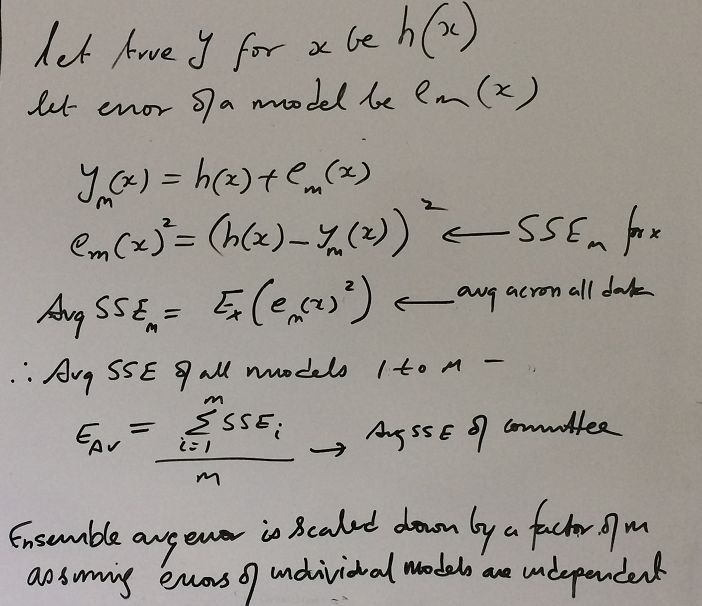 let true y for x be h(x)
let error of a model be em(x)
ym(x) = h(x) + em(x)
em(x)² = (h(x) – ym(x))² ← SSEm for x
Avg SSEm = Ex(em(x)²) ← avg across all data
∴ Avg SSE of all models 1 to M –
EAV = m Σ i=1 SSEi / m → Avg SSE of committee
Ensemble avg error is scaled down by a factor of m
assuming errors of individual models are independent